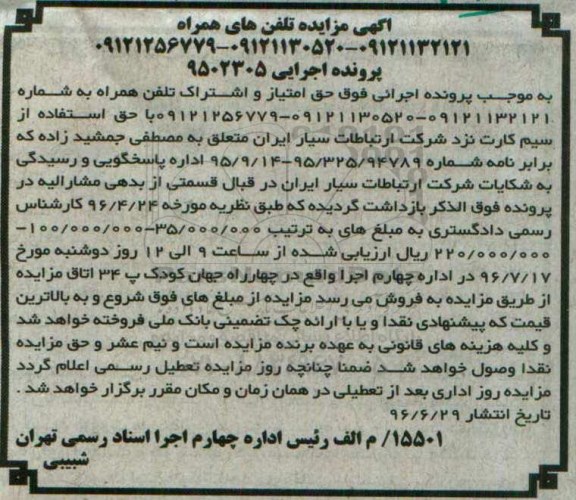 آگهی مزایده تلفن های همراه
۰۹۱۲۱۱۳۲۱۲۱-۰۹۱۲۱۱۳۰۵۲۰-۰۹۱۲۱۲۵۶۷۷۹
پرونده اجرایی ۹۵۰۲۳۰۵
به موجب پرونده اجرائی فوق حق امتیاز و اشتراک تلفن همراه به شماره
۰۹۱۲۱۱۳۲۱۲۱-۰۹۱۲۱۱۳۰۵۲۰-۰۹۱۲۱۲۵۶۷۷۹با حق استفاده از
سیم کارت نزد شرکت ارتباطات سیار ایران متعلق به مصطفی جمشید زاده که
برابر نامه شماره ۹۵/۳۲۵/۹۴۷۸۹-۹۵/۹/۱۴ اداره پاسخگویی و رسیدگی
به شکایات شرکت ارتباطات سیار ایران در قبال قسمتی از بدهی مشارالیه در
پرونده فوق الذکر بازداشت گردیده که طبق نظریه مورخه ۹۶/۴/۲۴ کارشناس
رسمی دادگستری به مبلغ های به ترتیب ۳۵/۰۰۰/۰۰۰-۱۰۰/۰۰۰/۰۰۰-
۲۲۰/۰۰۰/۰۰۰ ریال ارزیابی شده از ساعت ۹ الی ۱۲ روز دوشنبه مورخ
۹۶/۷/۱۷ در اداره چهارم اجرا واقع در چهارراه جهان کودک پ ۳۴ اتاق مزایده
از طریق مزایده به فروش می رسد مزایده از مبلغ های فوق شروع و به بالاترین
قیمت که پیشنهادی نقدا و یا با ارائه چک تضمینی بانک ملی فروخته خواهد شد
و کلیه هزینه های قانونی به عهده برنده مزایده است و نیم عشر و حق مزایده
نقدا وصول خواهد شد ضمنا چنانچه روز مزایده تعطیل رسمی اعلام گردد
مزایده روز اداری بعد از تعطیلی در همان زمان و مکان مقرر برگزار خواهد شد .
تاریخ انتشار ۹۶/۶/۲۹
۱۵۵۰۱/ م الف رئیس اداره چهارم اجرا اسناد رسمی تهران
شبیبی